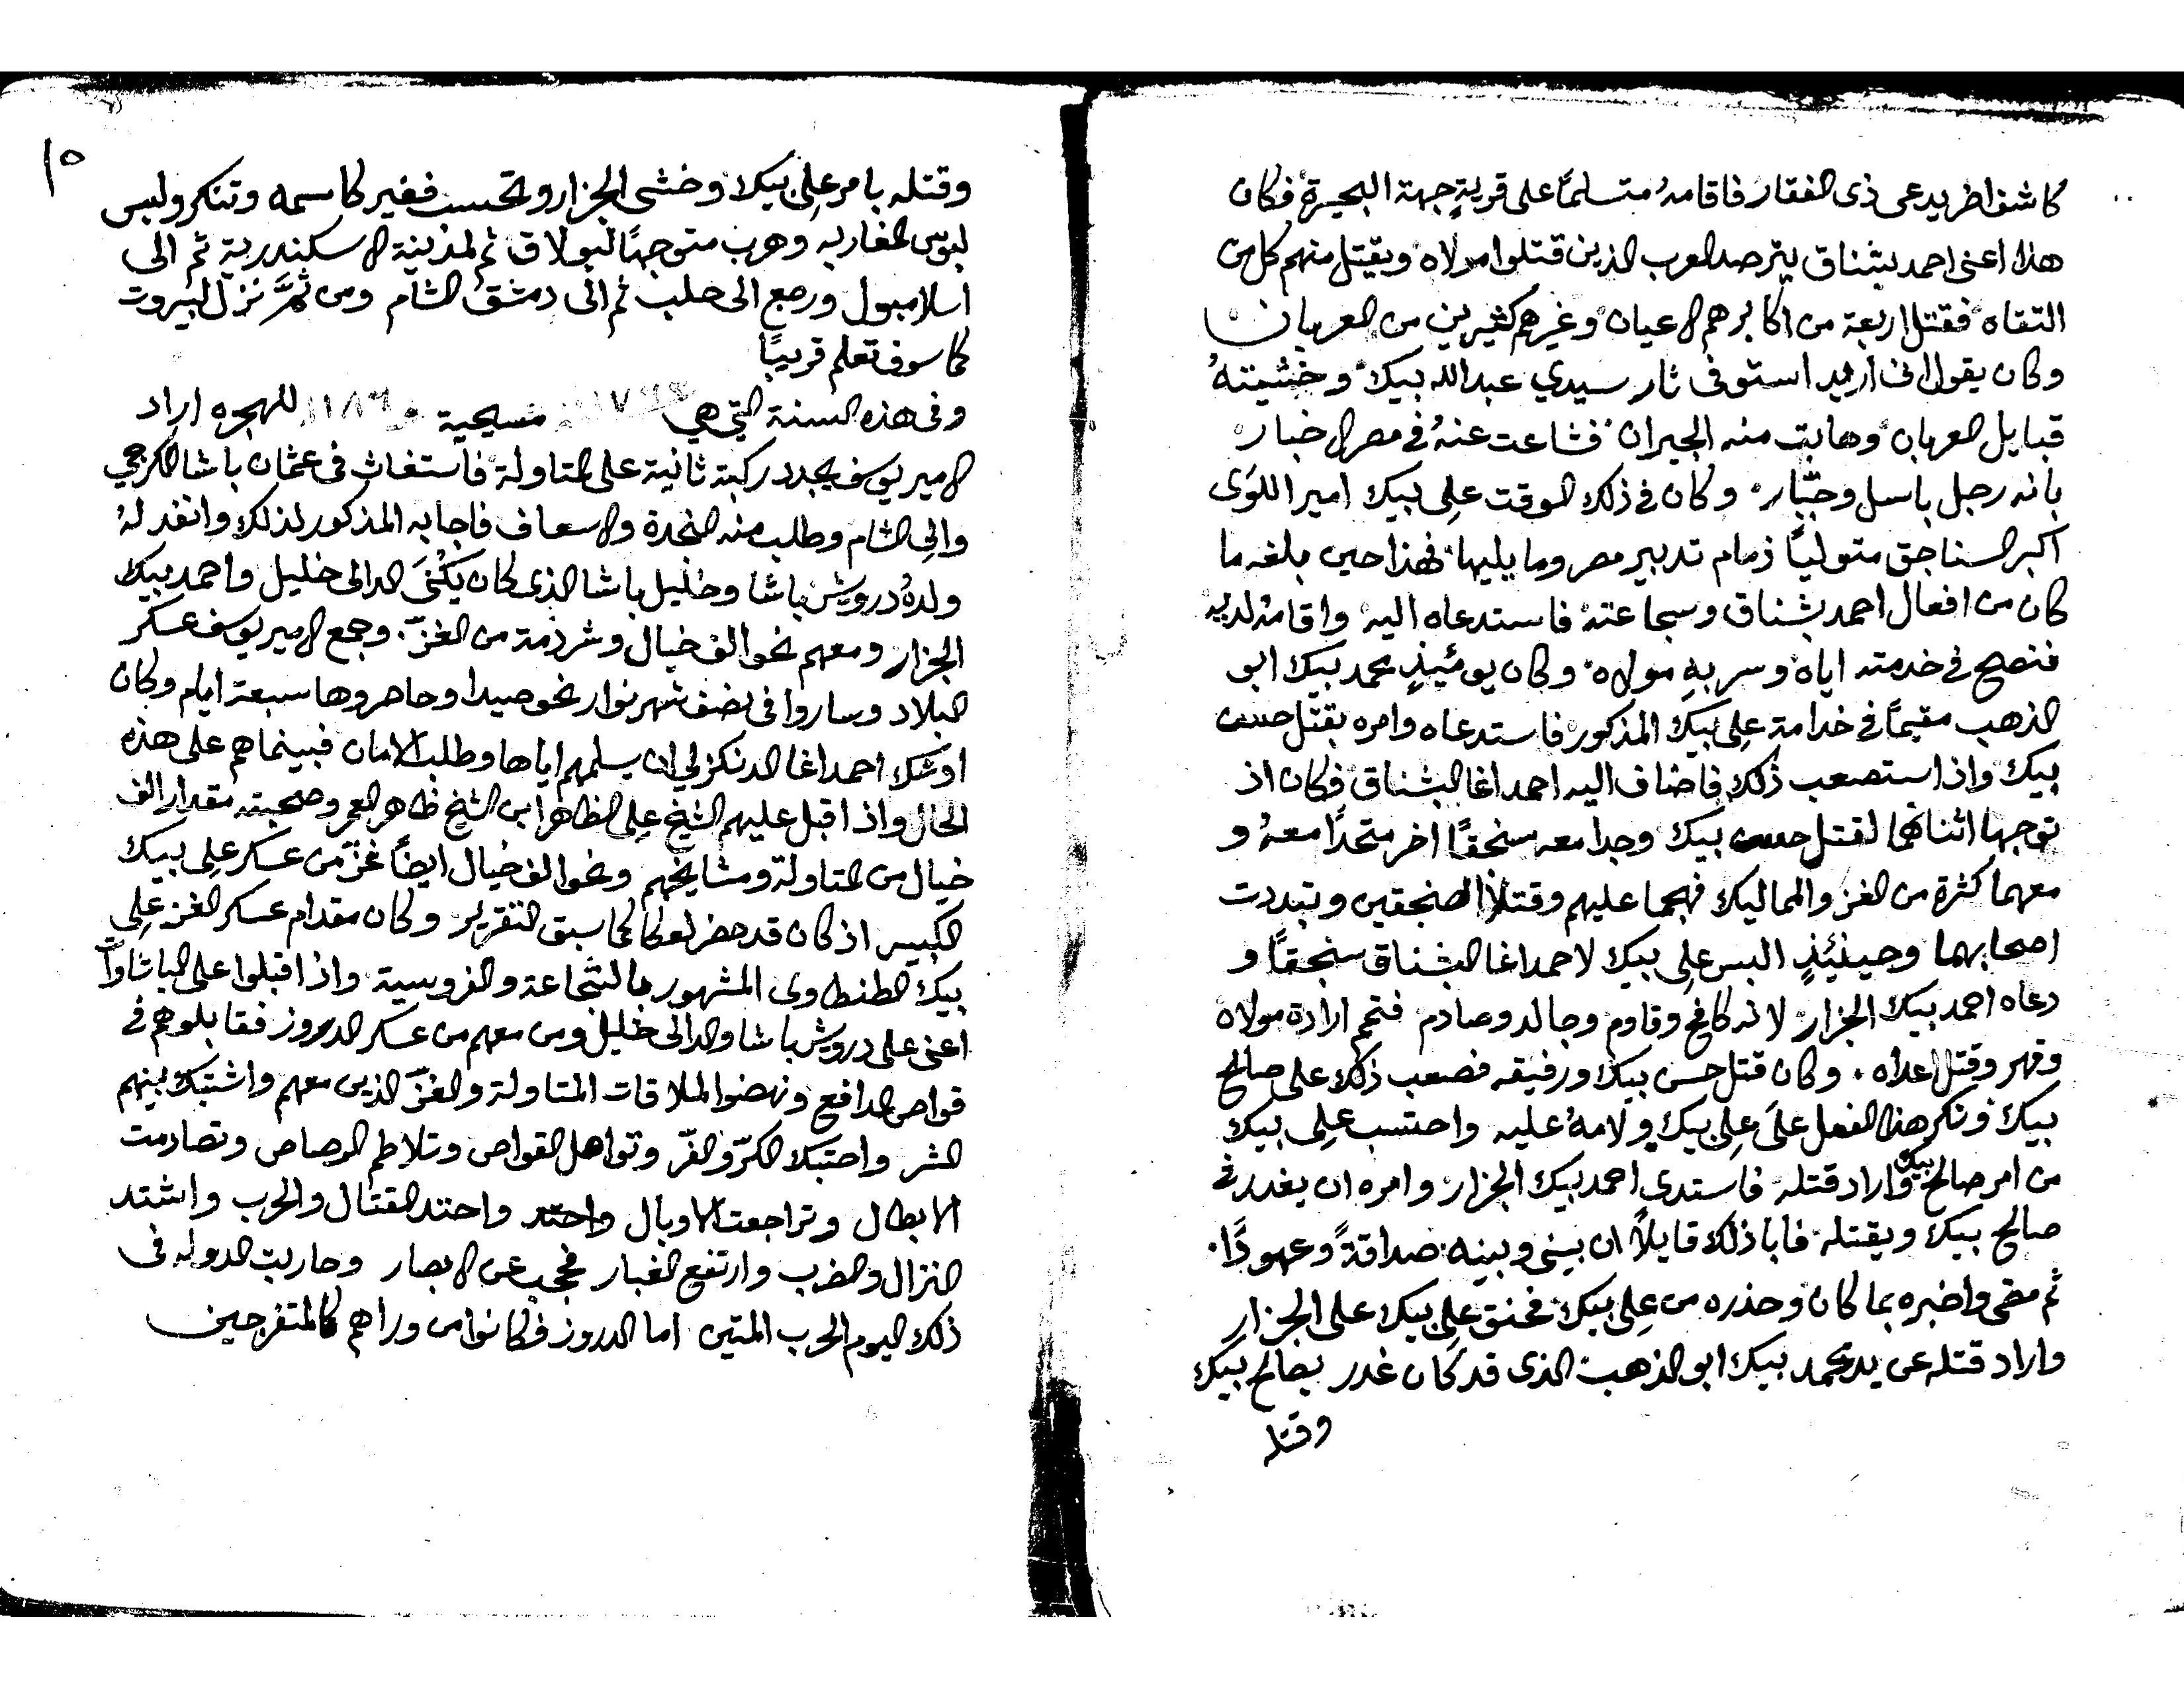 كاشف اخر يدعى ذى الفقار فاقامهُ متسلماً على قريةٍ جهة البحيرة فكان
هذا اعنى احمد بشناق يترصد العرب الذين قتلوا مولاه ويقتل منهم كل من
التقاه فقتل اربعة من اكابرهم الاعيان وغيرهم كثيرين من العربان
وكان يقول انى اريد استوفى ثار سيدي عبد الله بيك وخشيتهُ
قبايل العربان وهابت منه الجيران فشاعت عنهُ فى مصر الاخبار
بانه رجل باسل وجبّار وكان فى ذلك الوقت علِى بيك امير اللوَى
اكبر السناجق متولياً زمام تدبير مصر وما يليها فهذا حين بلغه ما
كان من افعال احمد بشناق وسجاعته فاستدعاه اليه واقامهُ لديه
فنصح فى خدمته اياه وسر بهِ مولاه وكان يومئيذٍ محمد بيك ابو
الذهب مقيماً فى خدامة علِى بيك المذكور فاستدعاه وامره بقتل حسن
بيك واذ استصعب ذلك فاضاف اليه احمد اغا البشناق فكان اذ
توجها اثناهما لقتل حسن بيك وجدا معه سنجقاً اخر متحداً معهُ و
معهما كثرة من الغز والمماليك فهجما عليهم وقتلا الصنجقين وتبددت
اصحابهما وحينئيذٍ البس علِى بيك لاحمد اغا البشناق سنجقاً و
دعاه احمد بيك الجزار لانه كافح وقاوم وجالد وصادم فتمم ارادة مولاه
وقهر وقتل اعداه . وكان قتل حسن بيك ورفيقه فصعب ذلك على صالح
بيك ونكر هذا الفعل علَى علِى بيك ولامهُ عليه واحتسب علِى بيك
من امر صالح بيك واراد قتله فاستدعى احمد بيك الجزار وامره ان يغدر فى
صالح بيك ويقتله فابا ذلك قايلاً ان بينى وبينه صداقةً وعهوداً.
ثم مضى واخبره بما كان وحذره من علِى بيك فحنق علِى بيك على الجزار
واراد قتله عن يد محمد بيك ابو الذهب الذى قد كان غدر بصالح بيك
وقتله
١٥
وقتله بامر علِى بيك وخشى الجزار وتحسب فغير كاسمه وتنكر ولبس
لبوس المغاربه وهرب متوجهاً لبولاق ثم لمدينة الاسكندرية ثم الى
اسلامبول ورجع الى حلب ثم الى دمشق الشام ومن ثَمَّ نزل لبيروت
كما سوف تعلم قريباً
وفى هذه السنة التى هي مسيحية و ١١٨٦ للهجره اراد
الامير يوسف يجدد ركبة ثانية على المتاولة فاستغاث فى عثمان باشا الكرجي
والِى الشام وطلب منه النجدة والاسعاف فاجابه المذكور لذلك وانفد لهُ
ولدهُ درويش باشا وخليل باشا الذى كان يكْنَى الدالى خليل واحمد بيك
الجزار ومعهم نحو الف خيال وشرذمة من الغزّ. وجمع الامير يوسف عسكر
البلاد وساروا فى نضف شهر نوار نحو صيدا وحاصروها سبعة ايام وكان
اوشك احمد اغا الدنكزلي ان يسلمهم اياها وطلب الامان فبينما هم على هذه
الحال واذا قبل عليهم الشيخ علِى الظاهر ابن الشيخ ظاهر العمر وصحبته مقدار الف
خيال من المتاولة ومشايخهم ونحو الف خيال ايضاً غزّ من عسكر علِى بيك
الكبير اذ كان قد حضر لعكا كما سبق التقرير وكان مقدام عسكر الغز علِى
بيك الطنطاوى المشهور بالشجاعة والفروسية واذ اقبلوا على الباشاوات
اعنى على درويش باشا والدالى خليل ومن معهم من عسكر الدروز فقابلوهم فى
قواص المدافع ونهضوا لملاقات المتاولة والغزّ الذين معهم واشتبك بينهم
الشر واحتبك الكرّ والفرّ وتواهل القواص وتلاطم الرصاص وتصادمت
الابطال وتراجعت الاوبال واحتد القتال والحرب واشتد
النزال والضرب وارتفع الغبار فحجب عن الابصار وحاربت الدوله فى
ذلك اليوم الحرب المتين اما الدروز فكانوا من وراهم كالمتفرجين